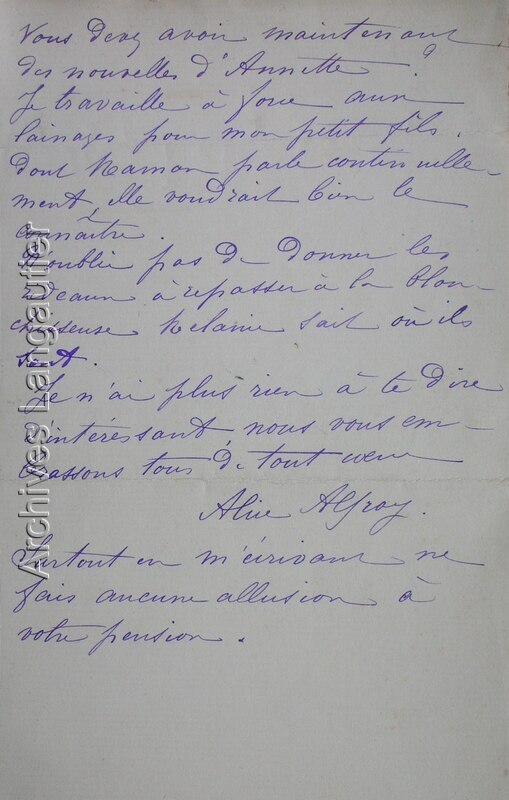 Vous devez avoir maintenant
des nouvelles d'Annette ?
Je travaille à force aux
lainages pour mon petit fils.
dont Maman parle continuelle-
ment, elle voudrait bien le
connaître.
N'oublie pas de donner les
rideaux à repasser à la blan-
chisseuse Mélanie sait où ils
sont.
Je n'ai plus rien à te dire
d'intéressant, nous vous em-
brassons tous de tout cœur
Alice Alfroy.
Surtout en m'écrivant ne
fais aucune allusion à
votre pension.
Archives Langautier